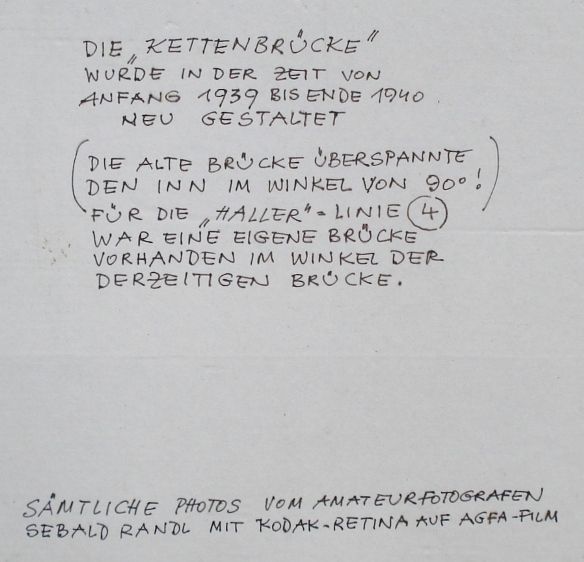 DIE „KETTENBRÜCKE"
WURDE IN DER ZEIT VON
ANFANG 1939 BIS ENDE 1940
NEU GESTALTET
(DIE ALTE BRÜCKE ÜBERSPANNTE
DEN INN IM WINKEL VON 90°!)
FÜR DIE „HALLER"-LINIE (4)
WAR EINE EIGENE BRÜCKE
VORHANDEN IM WINKEL DER
DERZEITIGEN BRÜCKE.
SÄMTLICHE PHOTOS VOM AMATEURFOTOGRAFEN
SEBALD RANDL MIT KODAK-RETINA AUF AGFA-FILM